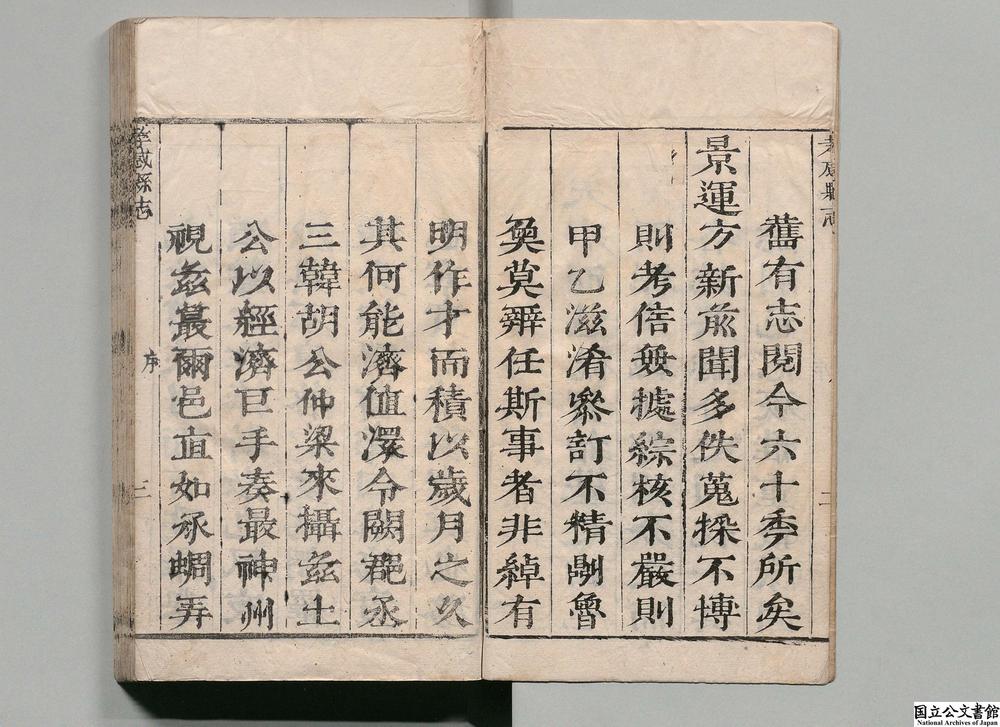 舊有志閱今六十秊所矣
景運方新前聞多佚蒐採不博
則考信無據綜核不嚴則
甲乙滋淆叅訂不精則魯
奐莫辨任斯事者非綽有
明作才而積以歲月之久
其何能濟值澴令闕郡丞
三韓胡公仲梁來攝茲土
公以經濟巨手奏最神州
視茲蕞爾邑直如承蜩弄
孝感縣志
序
二
孝感縣志
三
国立公文書館
National Archives of Japan